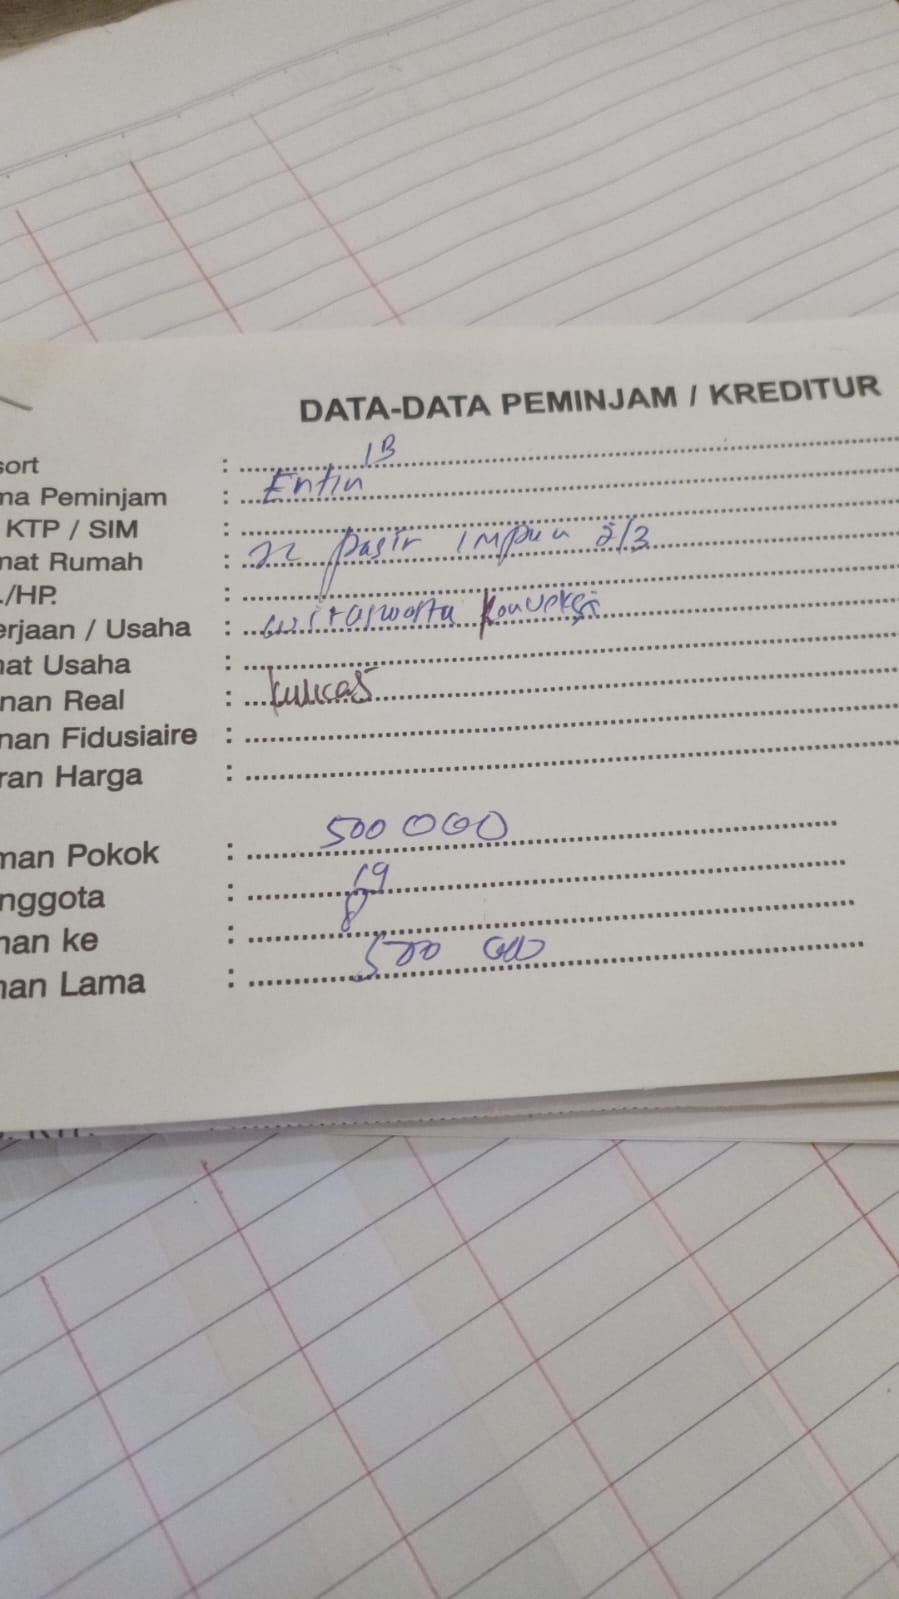 DATA-DATA PEMINJAM / KREDITUR
sort : 1B
ma Peminjam : Entin
KTP / SIM :
mat Rumah : JL pasir IMpun 2/3
./HP. :
erjaan / Usaha : wiraswasta konveksi
mat Usaha :
nan Real : kulkas
nan Fidusiaire :
ran Harga :
man Pokok : 500 000
nggota : 19
nan ke : 8
nan Lama : 500 000